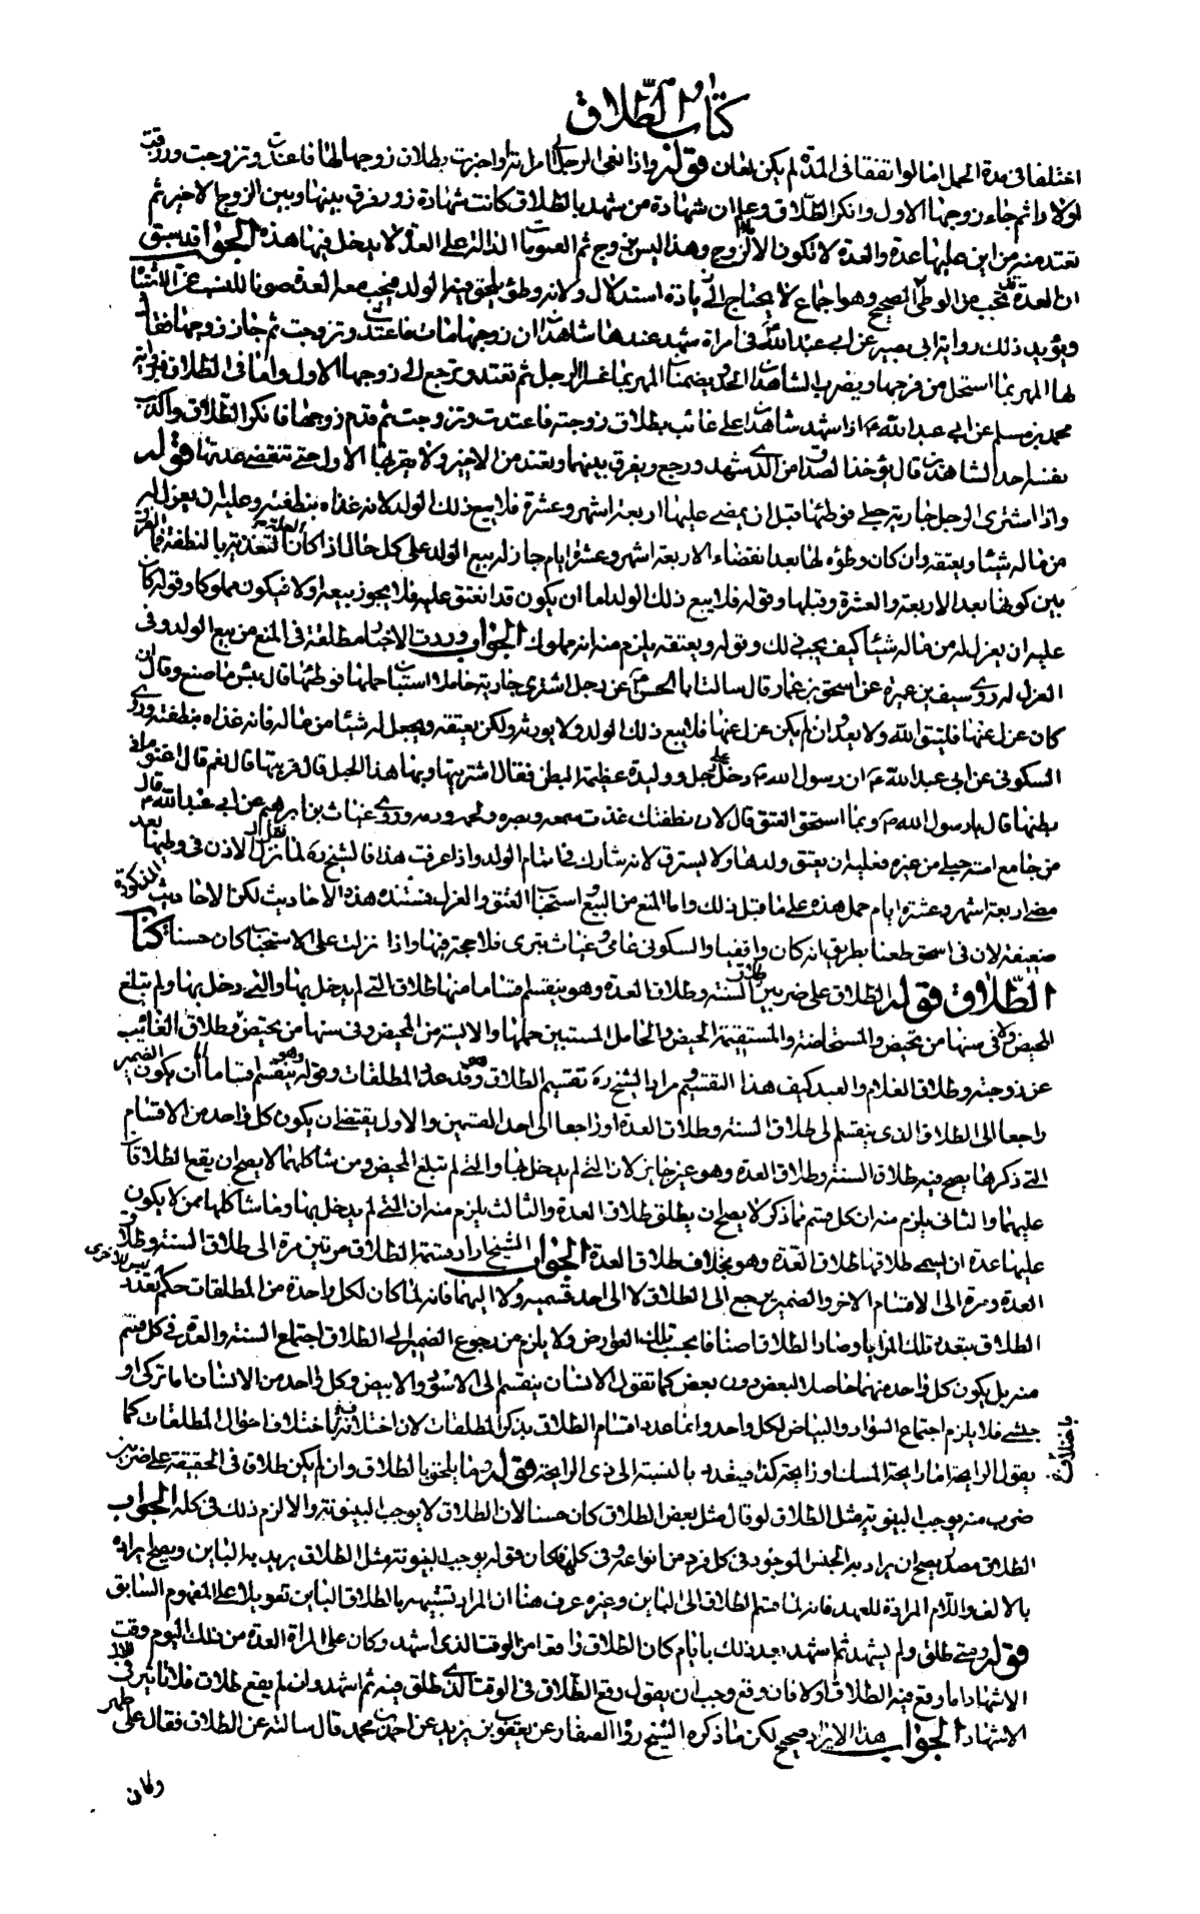 كتاب الطلاق
اختلفا في مدة الحمل اما لو اتفقا في المدة لم يكن لعان قوله واذا نعى الرجل الى امراته او اخبرت بطلاق زوجها لها فاعتدت وتزوجت ورزقت
اولادا ثم جاء زوجها الاول وانكر الطلاق وعلم ان شهادة من شهد بالطلاق كانت شهادة زور فرق بينها وبين الزوج الاخير ثم
تعتد منه من اين عليها عدة والعدة لا تكون الا لزوج وهذا ليس بزوج ثم العمومات الدالة على العدة لا يدخل فيها هذه الجواب قد سبق
ان العدة تجب من الوطئ الصحيح وهو اجماع لا يحتاج الى زيادة استدلال ولانه وطئ يلحق فيه الولد فيجب معه العدة صونا للنسب عن الاشتباه
ويؤيد ذلك رواية ابي بصير عن ابي عبد الله في امراة شهد عندها شاهدان ان زوجها مات فاعتدت وتزوجت ثم جاء زوجها فقال
لها المهر بما استحل من فرجها ويضرب الشاهدان الحد ويضمنان المهر بما غرا الرجل ثم تعتد وترجع الى زوجها الاول واما في الطلاق فرواية
محمد بن مسلم عن ابي عبد الله ع اذا شهد شاهدان على غائب بطلاق زوجته فاعتدت وتزوجت ثم قدم زوجها فانكر الطلاق واكذب
نفسه احد الشاهدين قال يؤخذ الصداق من الذي شهد ورجع ويفرق بينهما وتعتد من الاخير ولا يقربها الاول حتى تنقضي عدتها قوله
واذا اشترى الرجل جارية حبلى فوطئها قبل ان يمضي عليها اربعة اشهر وعشرة فلا يبيع ذلك الولد لانه غذاه بنطفته وعليه ان يعزل له
من ماله شيئا ويعتقه وان كان وطؤه لها بعد انقضاء الاربعة اشهر وعشرة ايام جاز له بيع الولد على كل حال اذا كانت العلة التغذية بالنطفة فما الفرق
بين كونها بعد الاربعة والعشرة وقبلها وقوله فلا يبيع ذلك الولد اما ان يكون قد انعتق عليه فلا يجوز بيعه اولا فيكون مملوكا وقوله كان
عليه ان يعزل له من ماله شيئا كيف يجب ذلك وقوله ويعتقه يلزم منه انه مملوك الجواب وردت الاخبار مطلقة في المنع من بيع الولد وفي
العزل له روى سيف بن عميرة عن اسحق بن عمار قال سالت ابا الحسن ع عن رجل اشترى جارية حاملا استبان حملها فوطئها قال بئس ما صنع وقال ان
كان عزل عنها فليتق الله ولا يعد وان لم يكن عزل عنها فلا يبيع ذلك الولد ولا يورثه ولكن يعتقه ويجعل له شيئا من ماله فانه غذاه بنطفته وروى
السكوني عن ابي عبد الله ع ان رسول الله ص دخل على رجل ووليدة عظيمة البطن فقال اشتريتها وبها هذا الحبل قال قربتها قال نعم قال اعتق ما في
بطنها قال يا رسول الله ص وبما استحق العتق قال لان نطفتك غذت سمعه وبصره ولحمه ودمه وروى غياث بن ابرهيم عن ابي عبد الله ع قال
من جامع امته حبلى من غيره فعليه ان يعتق ولدها ولا يسترق لانه شارك في اتمام الولد واذا عرفت هذا فالشيخ ره لما نزل الاذن في وطئها بعد
مضي اربعة اشهر وعشرة ايام حمل هذه على ما قبل ذلك واما المنع من البيع استحباب العتق والعزل فمستنده هذه الاحاديث لكن الاحاديث المذكورة
ضعيفة لان في اسحق طعنا بطريق انه كان واقفيا والسكوني عامي وغياث بتري فلا حجة فيها واذا نزلت على الاستحباب كان حسنا كتاب
الطلاق قوله الطلاق على ضربين طلاق السنة وطلاق العدة وهو ينقسم اقساما منها طلاق التي لم يدخل بها والتي دخل بها ولم تبلغ
المحيض ولا في سنها من تحيض والمستحاضة والمستقيمة الحيض والحامل المستبين حملها والايسة من المحيض وفي سنها من تحيض وطلاق الغائب
عن زوجته وطلاق الغلام والعبد كيف هذا التقسيم مراد الشيخ ره تقسيم الطلاق وهو قد عد المطلقات وقوله وهو ينقسم اقساما اما ان يكون الضمير
راجعا الى الطلاق الذي ينقسم الى طلاق السنة وطلاق العدة او راجعا الى احد القسمين والاول يقتضي ان يكون كل واحد من الاقسام
التي ذكرها يصح فيه طلاق السنة وطلاق العدة وهو غير جايز لان التي لم يدخل بها والتي لم تبلغ المحيض ومن شاكلهما لا يصح ان يقع الطلاقان
عليهما والثاني يلزم منه ان كل قسم مما ذكر لا يصلح ان يطلق طلاق العدة والثالث يلزم منه ان التي لم يدخل بها وما شاكلها ممن لا يكون
عليها عدة ان يسمى طلاقها طلاق العدة وهو بخلاف طلاق العدة الجواب الشيخ اراد قسمة الطلاق مرتين مرة الى طلاق السنة وطلاق
العدة ومرة الى الاقسام الاخر والضمير يرجع الى الطلاق لا الى احد قسميه ولا اليهما فانه لما كان لكل واحدة من المطلقات حكم ليس للاخرى تعدد
الطلاق بتعدد تلك المزايا وصار الطلاق اصنافا بحسب تلك العوارض ولا يلزم من رجوع الضمير الى الطلاق اجتماع السنة والعدة في كل قسم
منه بل يكون كل واحدة منهما حاصلا لبعض دون بعض كما تقول الانسان ينقسم الى الاسود والابيض وكل واحد من الانسان اما تركي او
حبشي فلا يلزم اجتماع السواد والبياض لكل واحد وانما عدد اقسام الطلاق بذكر المطلقات لان اختلافه باختلاف احوال المطلقات كما
يقول الرايحة اما رايحة المسك او رايحة كذا فيتعدد بالنسبة الى ذي الرايحة قوله ومما يلحق بالطلاق وان لم يكن طلاقا في الحقيقة على ضربين
ضرب منه يوجب البينونة مثل الطلاق لو قال مثل بعض الطلاق كان حسنا لان الطلاق لا يوجب البينونة والا لزم ذلك في كله الجواب
الطلاق مصدر يصح ان يراد به الجنس الموجود في كل فرد من انواعه وفي كلها فكان قوله يوجب البينونة مثل الطلاق يريد به الباين ويصح ايراده
بالالف واللام المرادة للعهد فانه لما قسم الطلاق الى الباين وغيره عرف هنا ان المراد تشبيهه بالطلاق الباين تعويلا على المفهوم السابق
قوله ومتى طلق ولم يشهد ثم اشهد بعد ذلك بايام كان الطلاق واقعا من الوقت الذي اشهد وكان على المراة العدة من ذلك اليوم وقت
الاشهاد اما وقع فيه الطلاق اولا فان وقع وجب ان يقول وقع الطلاق في الوقت الذي طلق فيه ثم اشهد وان لم يقع طلاق فلا تاثير في ذلك
الاشهاد الجواب هذا الايراد صحيح لكن ما ذكره الشيخ رواه الصفار عن يعقوب بن يزيد عن احمد بن محمد قال سالته عن الطلاق فقال على طهر
وكان